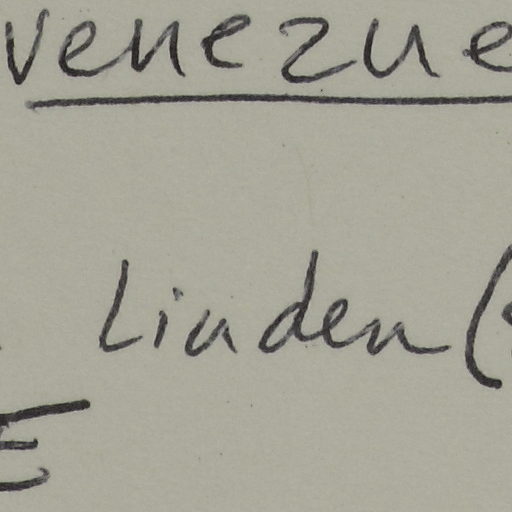 venezue
Linden (
E